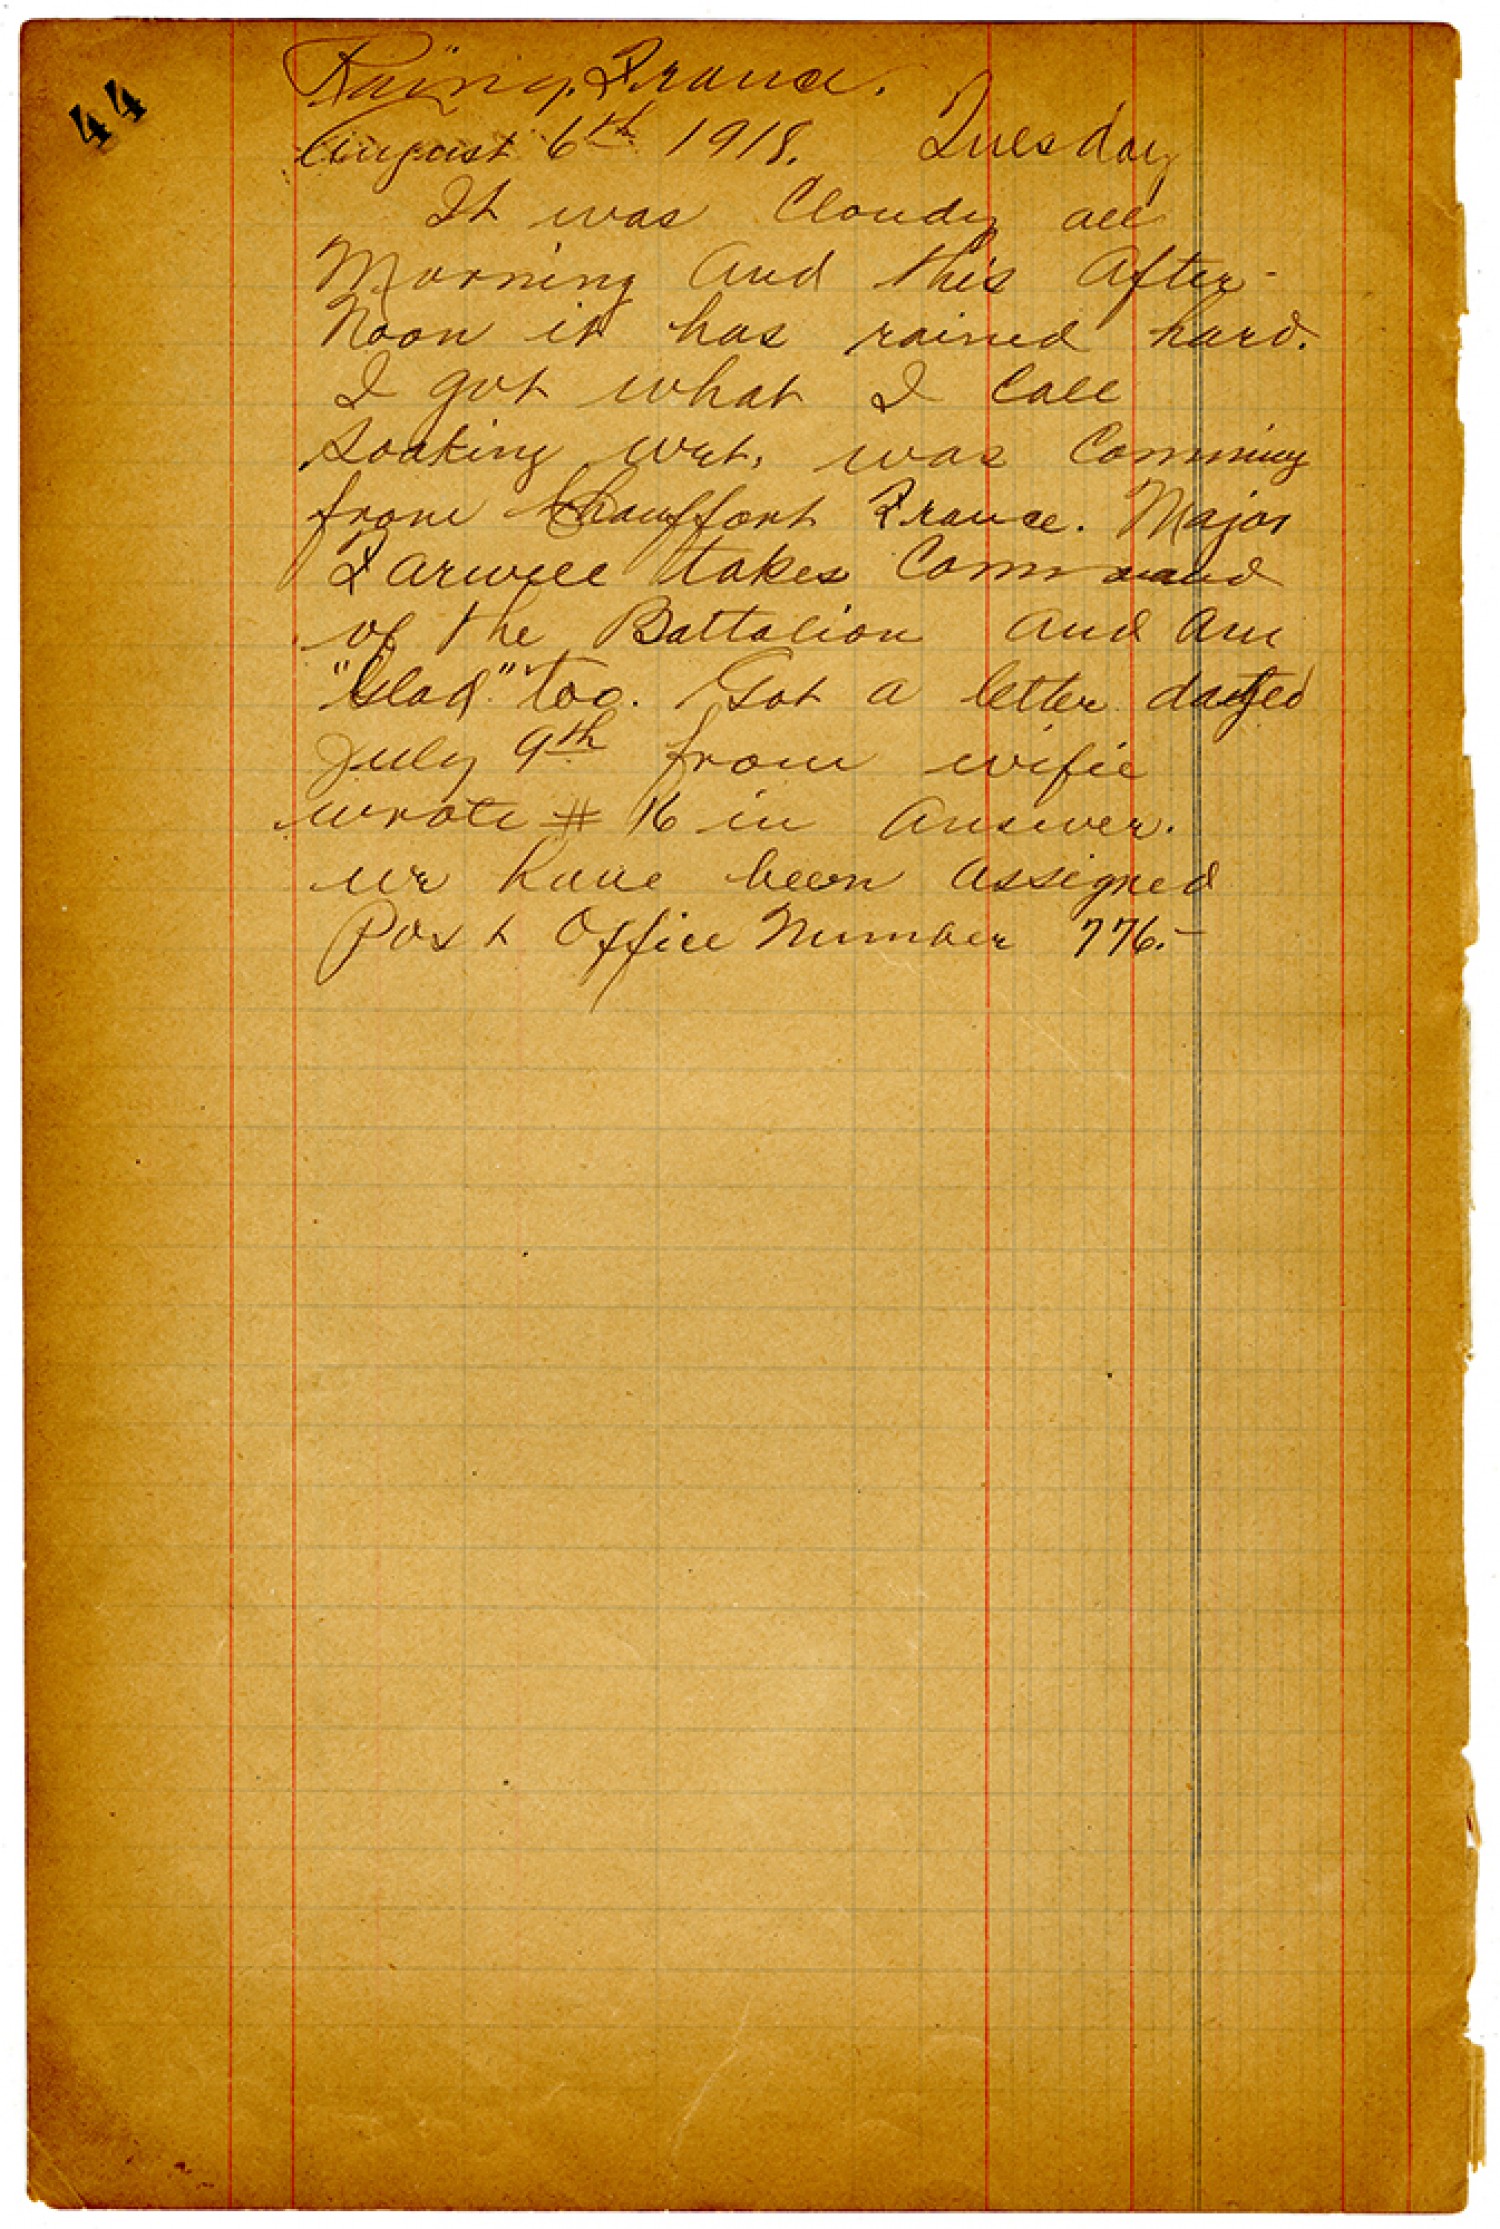 44
Raïnig, France.
August 6th 1918. Tuesday
It was Cloudy all
Morning And this After-
Noon it has rained hard.
I got what I Call
Soaking wet, was Comming
from Chauffort France. Major
Farwell takes Command
of the Battalion And Am
"Glad" too. Got a letter dated
July 9th from wifie
wrote # 16 in Answer.
we have been assigned
Post Office Number 776.-